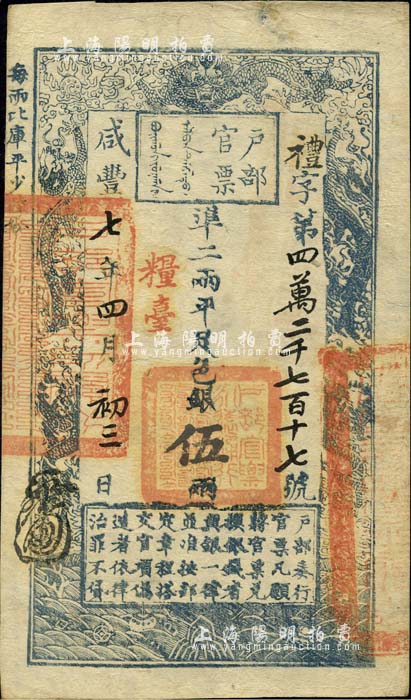 上海陽明拍賣
www.yangmingauction.com
戶部
官票
禮字第四萬二千七百十七號
準二兩平足色銀伍兩
糧臺
咸豐七年四月初三日
每兩比庫平少
戶部奏行
官票凡願
將官票兌
換銀錢者
與銀一律
並准按部
定章程搭
交官項偽
造者依律
治罪不貸
上海陽明拍賣
www.yangmingauction.com
上海陽明拍賣
www.yangmingauction.com